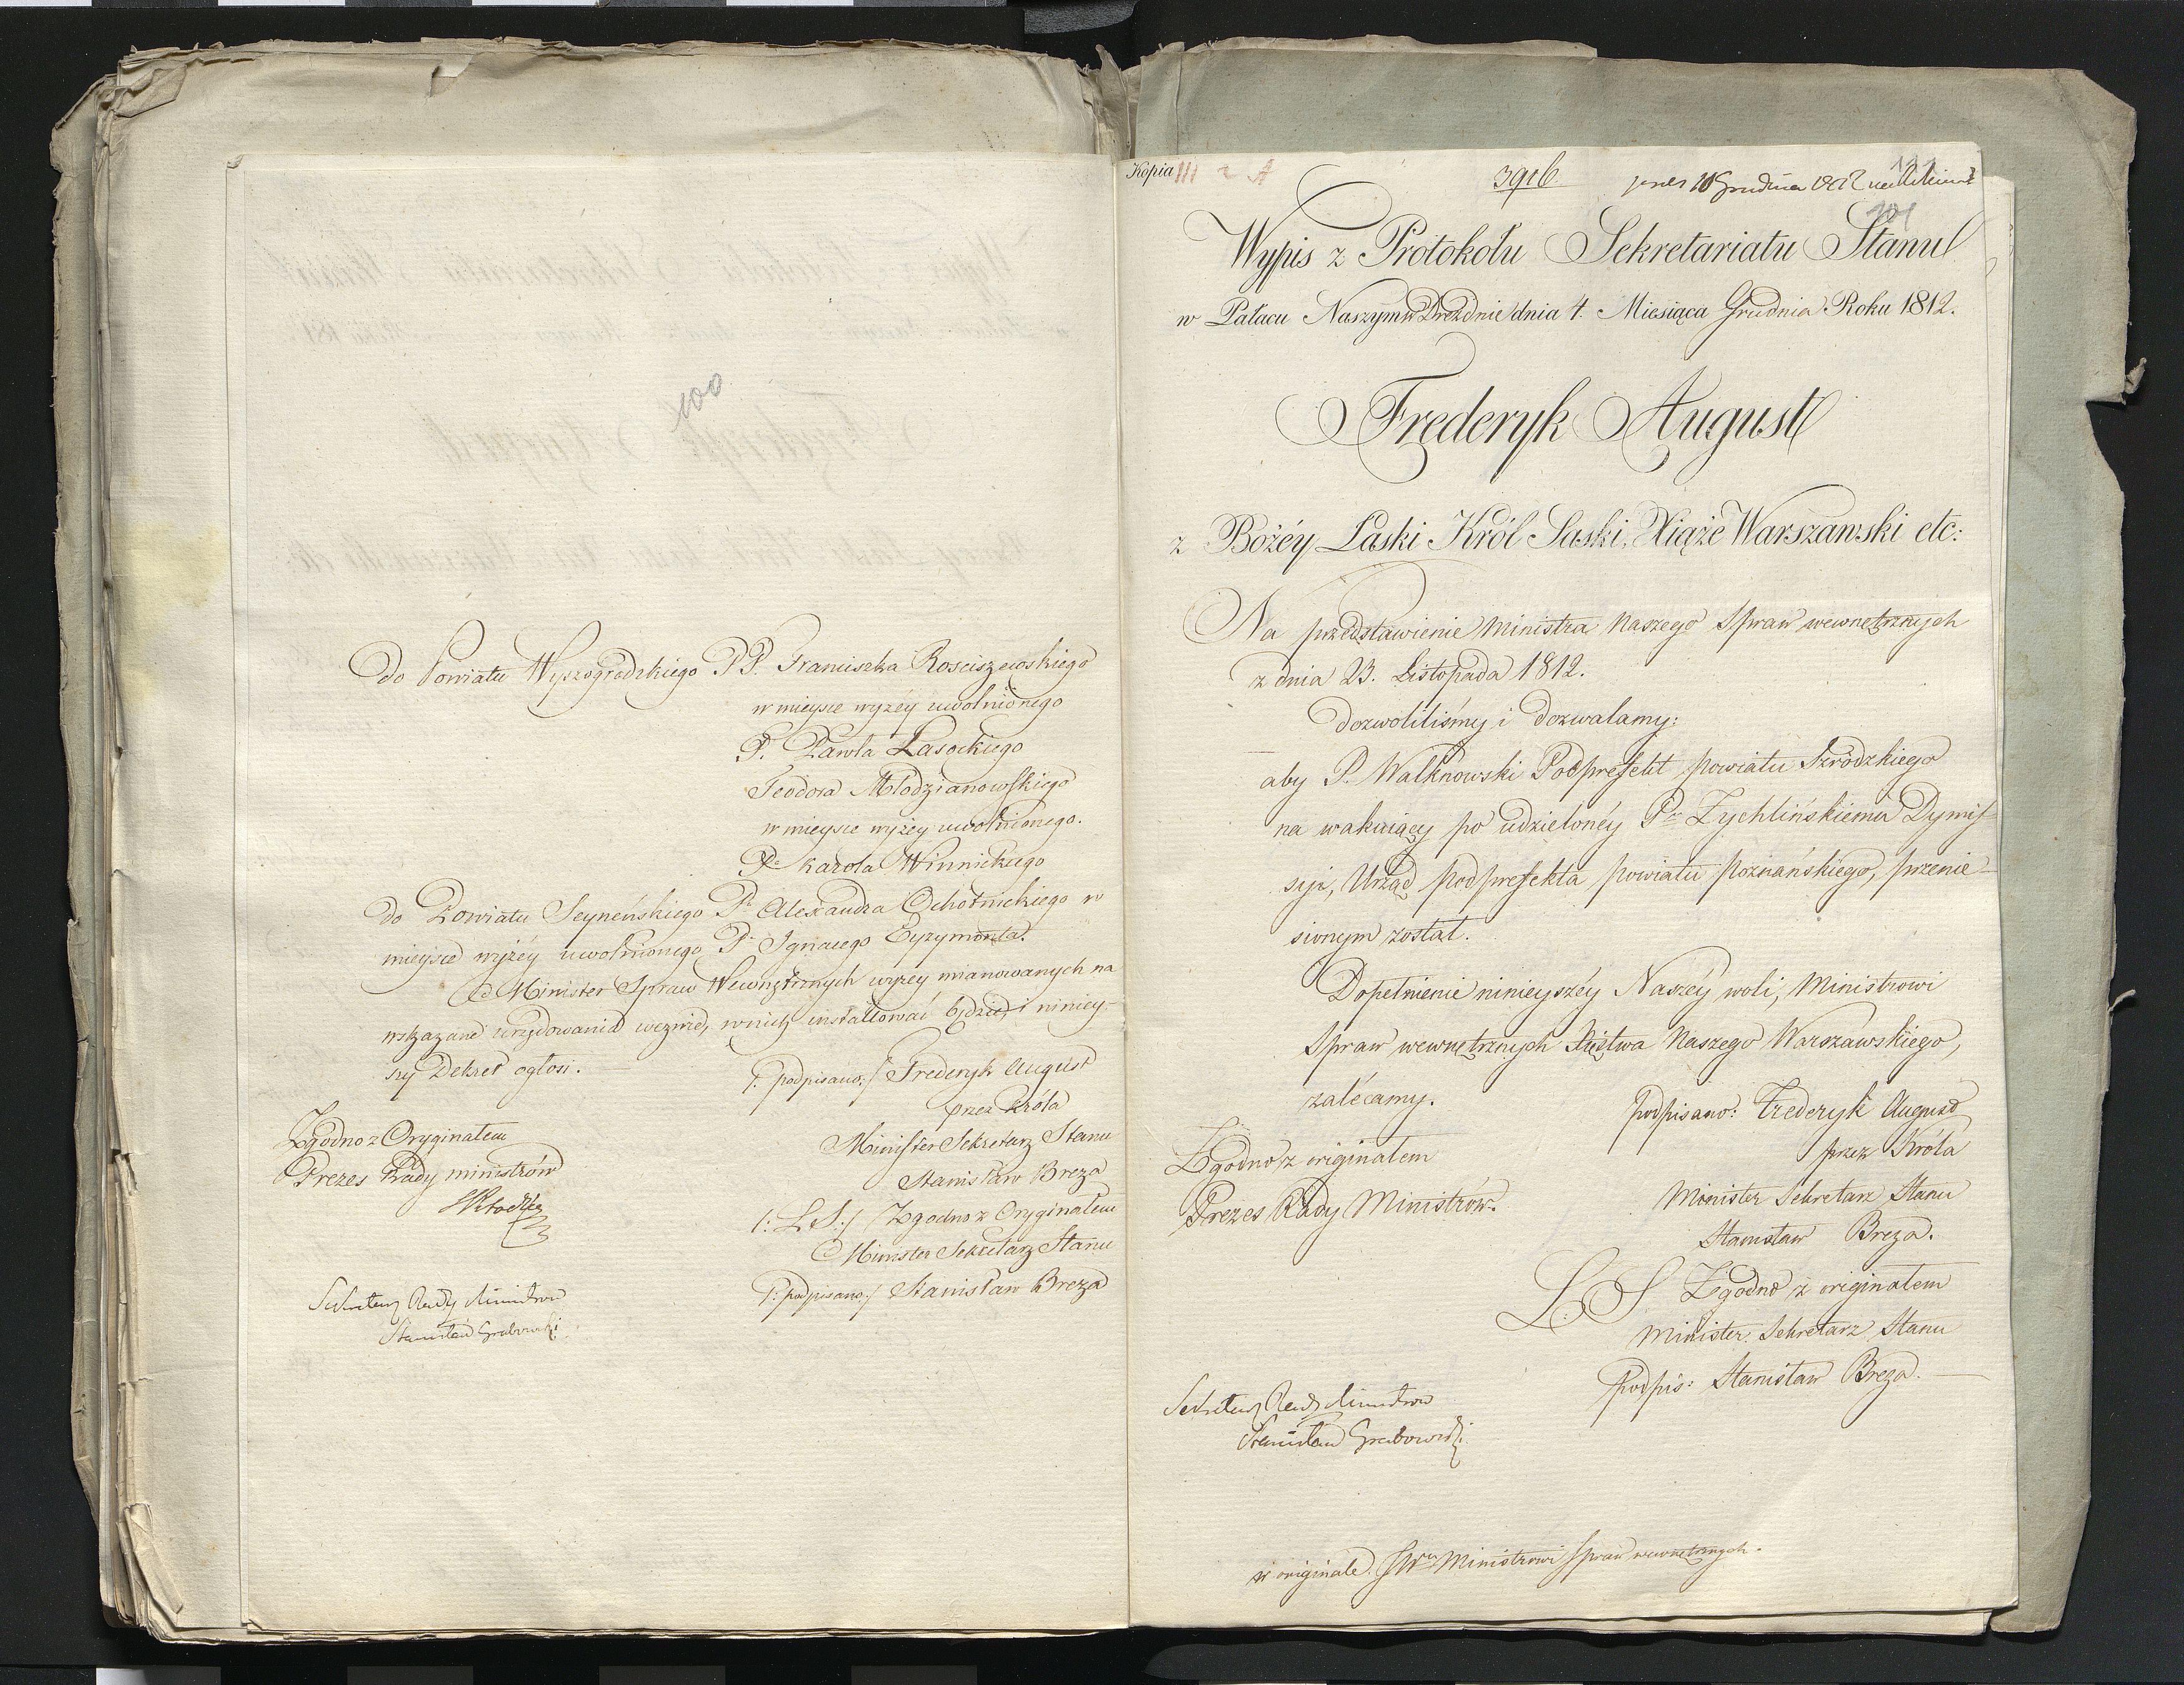 100
do Powiatu Wyszogrodzkiego PP. Franciszka Rosciszewskiego
w mieysce wyżéy uwolnionego
P. Pawła Lasockiego
Teodora Młodzianowskiego
w mieysce wyżéy uwolnionego.
Pa Karola Winnickiego
do Powiatu Seyneńskiego Pa Alexandra Ochotnickiego w
mieysce wyżéy uwolnionego Pa Ignacego Eyzymonta.
Minister Spraw Wewnętrznych wyżey mianowanych na
wskazane urzędowania wezwie, w nich installować będzie i niniey-
szy Dekret ogłosi.
/: podpisano :/ Frederyk August
przez Króla
Minister Sekretarz Stanu
Stanisław Breza
/: L.S. :/ Zgodno z Oryginałem
Minister Sekretarz Stanu
/: podpisano :/ Stanisław Breza
Zgodno z Oryginałem
Prezes Rady ministrów
Sekretarz Rady Ministrów
Stanisław Grabowski
Kopia III 2 A
3916.
10 Grudnia 1812
101
Wypis z Protokołu Sekretariatu Stanu
w Pałacu Naszym w Dreźdnie dnia 4. Miesiąca Grudnia Roku 1812.
Frederyk August
z Bożéy Łaski Król Saski, Xiąże Warszawski etc:
Na przedstawienie Ministra Naszego Spraw wewnętrznych
z dnia 23. Listopada 1812.
Dozwoliliśmy i dozwalamy:
aby P. Walknowski Podprefekt powiatu Szrodzkiego
na wakuiący po udzielonéy Pu Zychlińskiemu Dymis-
syi, Urząd podprefekta powiatu poznańskiego, przenie-
sionym został.
Dopełnienie ninieyszéy Naszéy woli, Ministrowi
Spraw wewnętrznych Xięstwa Naszego Warszawskiego,
zalécamy.
podpisano: Frederyk August
przez Króla
Minister Sekretarz Stanu
Stanisław Breza.
L. S. Zgodno z originałem
Minister Sekretarz Stanu
podpis: Stanisław Breza.
Zgodno z originałem
Prezes Rady Ministrów.
Sekretarz Rady Ministrów
Stanisław Grabowski
w originale JWu Ministrowi Spraw wewnętrznych.